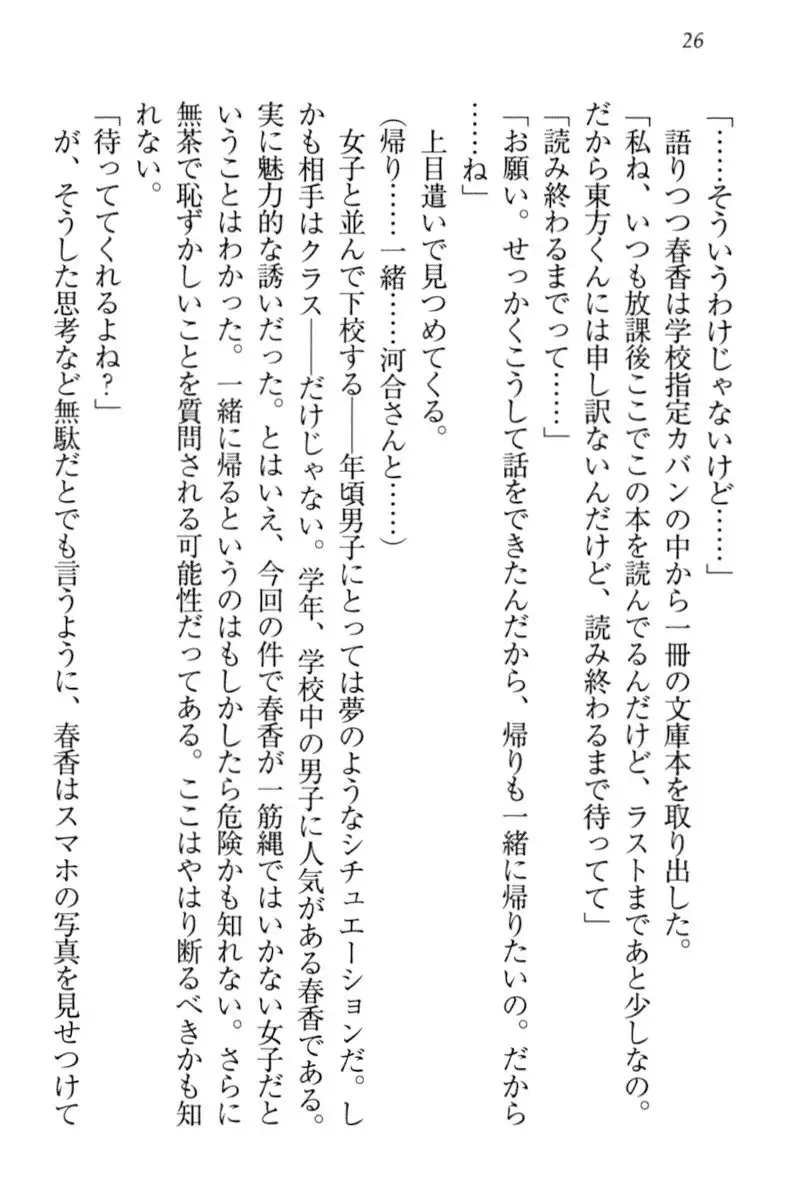 26
「……そういうわけじゃないけど……」
語りつつ春香は学校指定カバンの中から一冊の文庫本を取り出した。
「私ね、いつも放課後ここでこの本を読んでるんだけど、ラストまであと少しなの。
だから東方くんには申し訳ないんだけど、読み終わるまで待ってて」
「読み終わるまでって……」
「お願い。せっかくこうして話をできたんだから、帰りも一緒に帰りたいの。だから
……ね」
上目遣いで見つめてくる。
(帰り……一緒……河合さんと……)
女子と並んで下校する――年頃男子にとっては夢のようなシチュエーションだ。し
かも相手はクラス――だけじゃない。学年、学校中の男子に人気がある春香である。
実に魅力的な誘いだった。とはいえ、今回の件で春香が一筋縄ではいかない女子だと
いうことはわかった。一緒に帰るというのはもしかしたら危険かも知れない。さらに
無茶で恥ずかしいことを質問される可能性だってある。ここはやはり断るべきかも知
れない。
「待っててくれるよね？」
が、そうした思考など無駄だとでも言うように、春香はスマホの写真を見せつけて